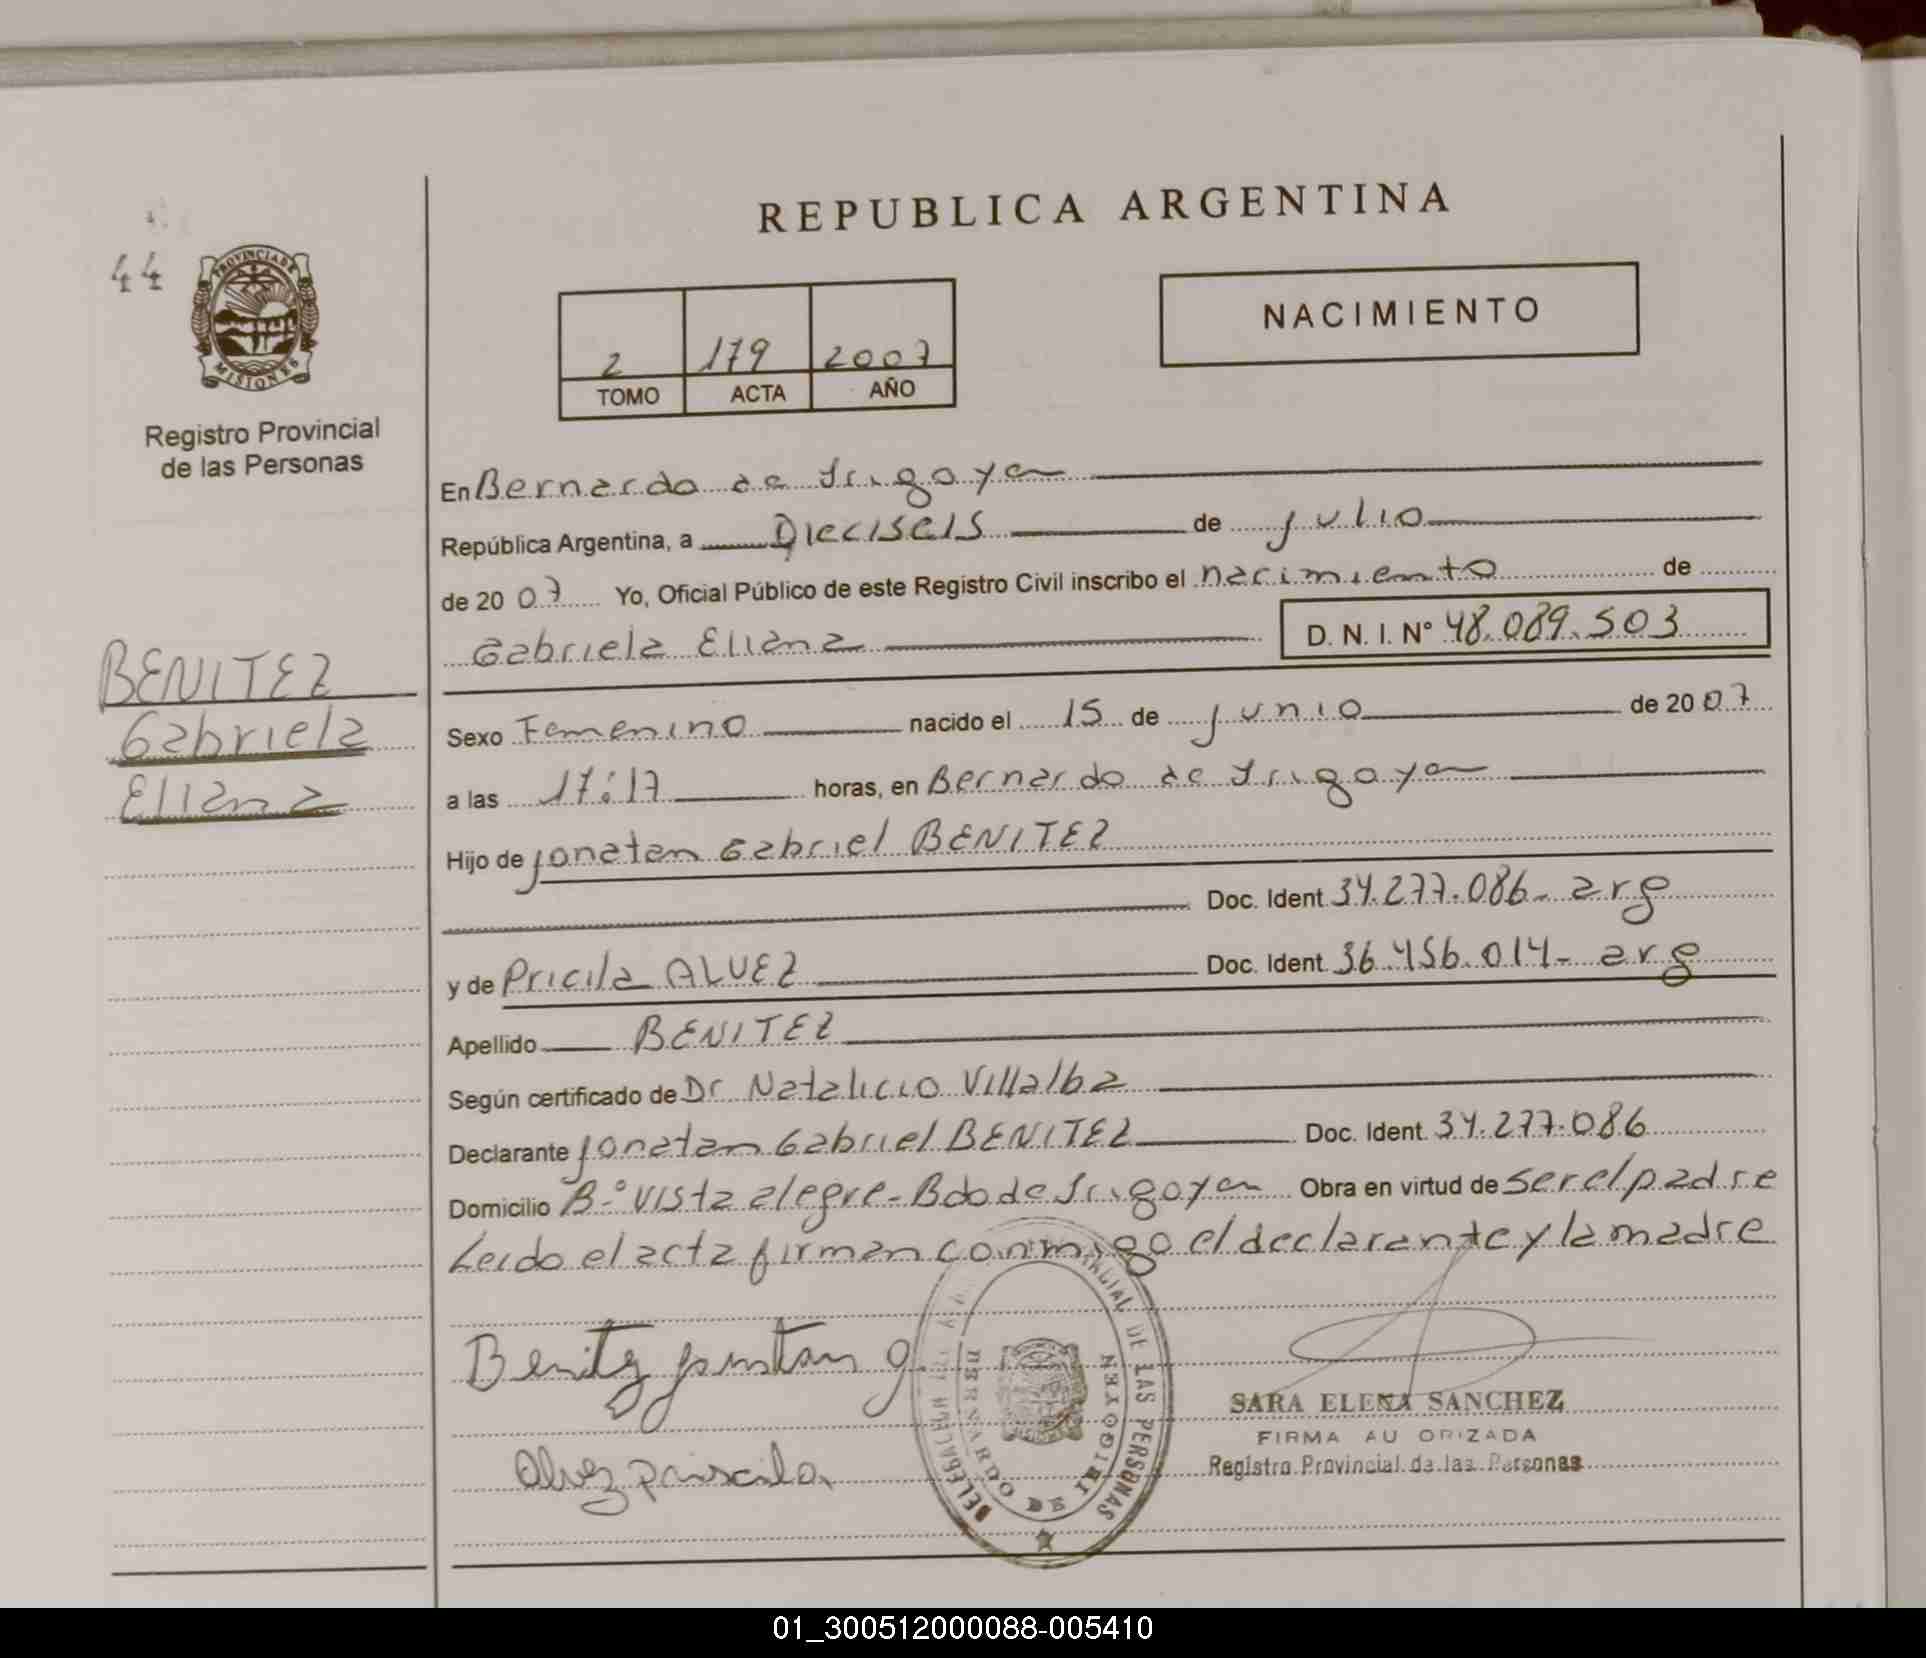 REPUBLICA ARGENTINA
44
PROVINCIA DE
MISIONES
Registro Provincial
de las Personas
NACIMIENTO
2 179 2007
TOMO ACTA AÑO
En Bernardo de Irigoyen
República Argentina, a Dieciseis de julio
de 20 07 Yo, Oficial Público de este Registro Civil inscribo el nacimiento de
Gabriela Eliana D. N. I. N° 48.089.503
BENITEZ
Gabriela
Eliana
Sexo Femenino nacido el 15 de junio de 20 07
a las 17:17 horas, en Bernardo de Irigoyen
Hijo de Jonatan Gabriel BENITEZ
Doc. Ident. 34.277.086- arg
y de Pricila ALVEZ Doc. Ident. 36.456.014- arg
Apellido BENITEZ
Según certificado de Dr Natalicio Villalba
Declarante Jonatan Gabriel BENITEZ Doc. Ident. 34.277.086
Domicilio B° Vista alegre- Bdo de Irigoyen Obra en virtud de ser el padre
Leido el acta firman conmigo el declarante y la madre
Benitez Jonatan g.
Alvez Priscila
DE LAS PERSONAS
BERNARDO DE IRIGOYEN
SARA ELENA SANCHEZ
FIRMA AU ORIZADA
Registro Provincial de las Personas
01_300512000088-005410